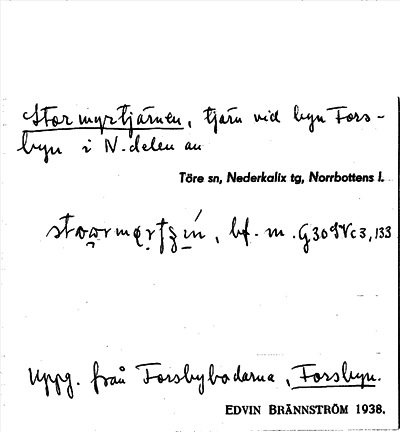 Stormyrtjärnen, tjärn vid byn Fors-
byn i N. delen av
Töre sn, Nederkalix tg, Norrbottens l.
bf. m. G30 IV c 3, 133
Uppg. från Forsbybodarna, Forsbyn.
EDVIN BRÄNNSTRÖM 1938.